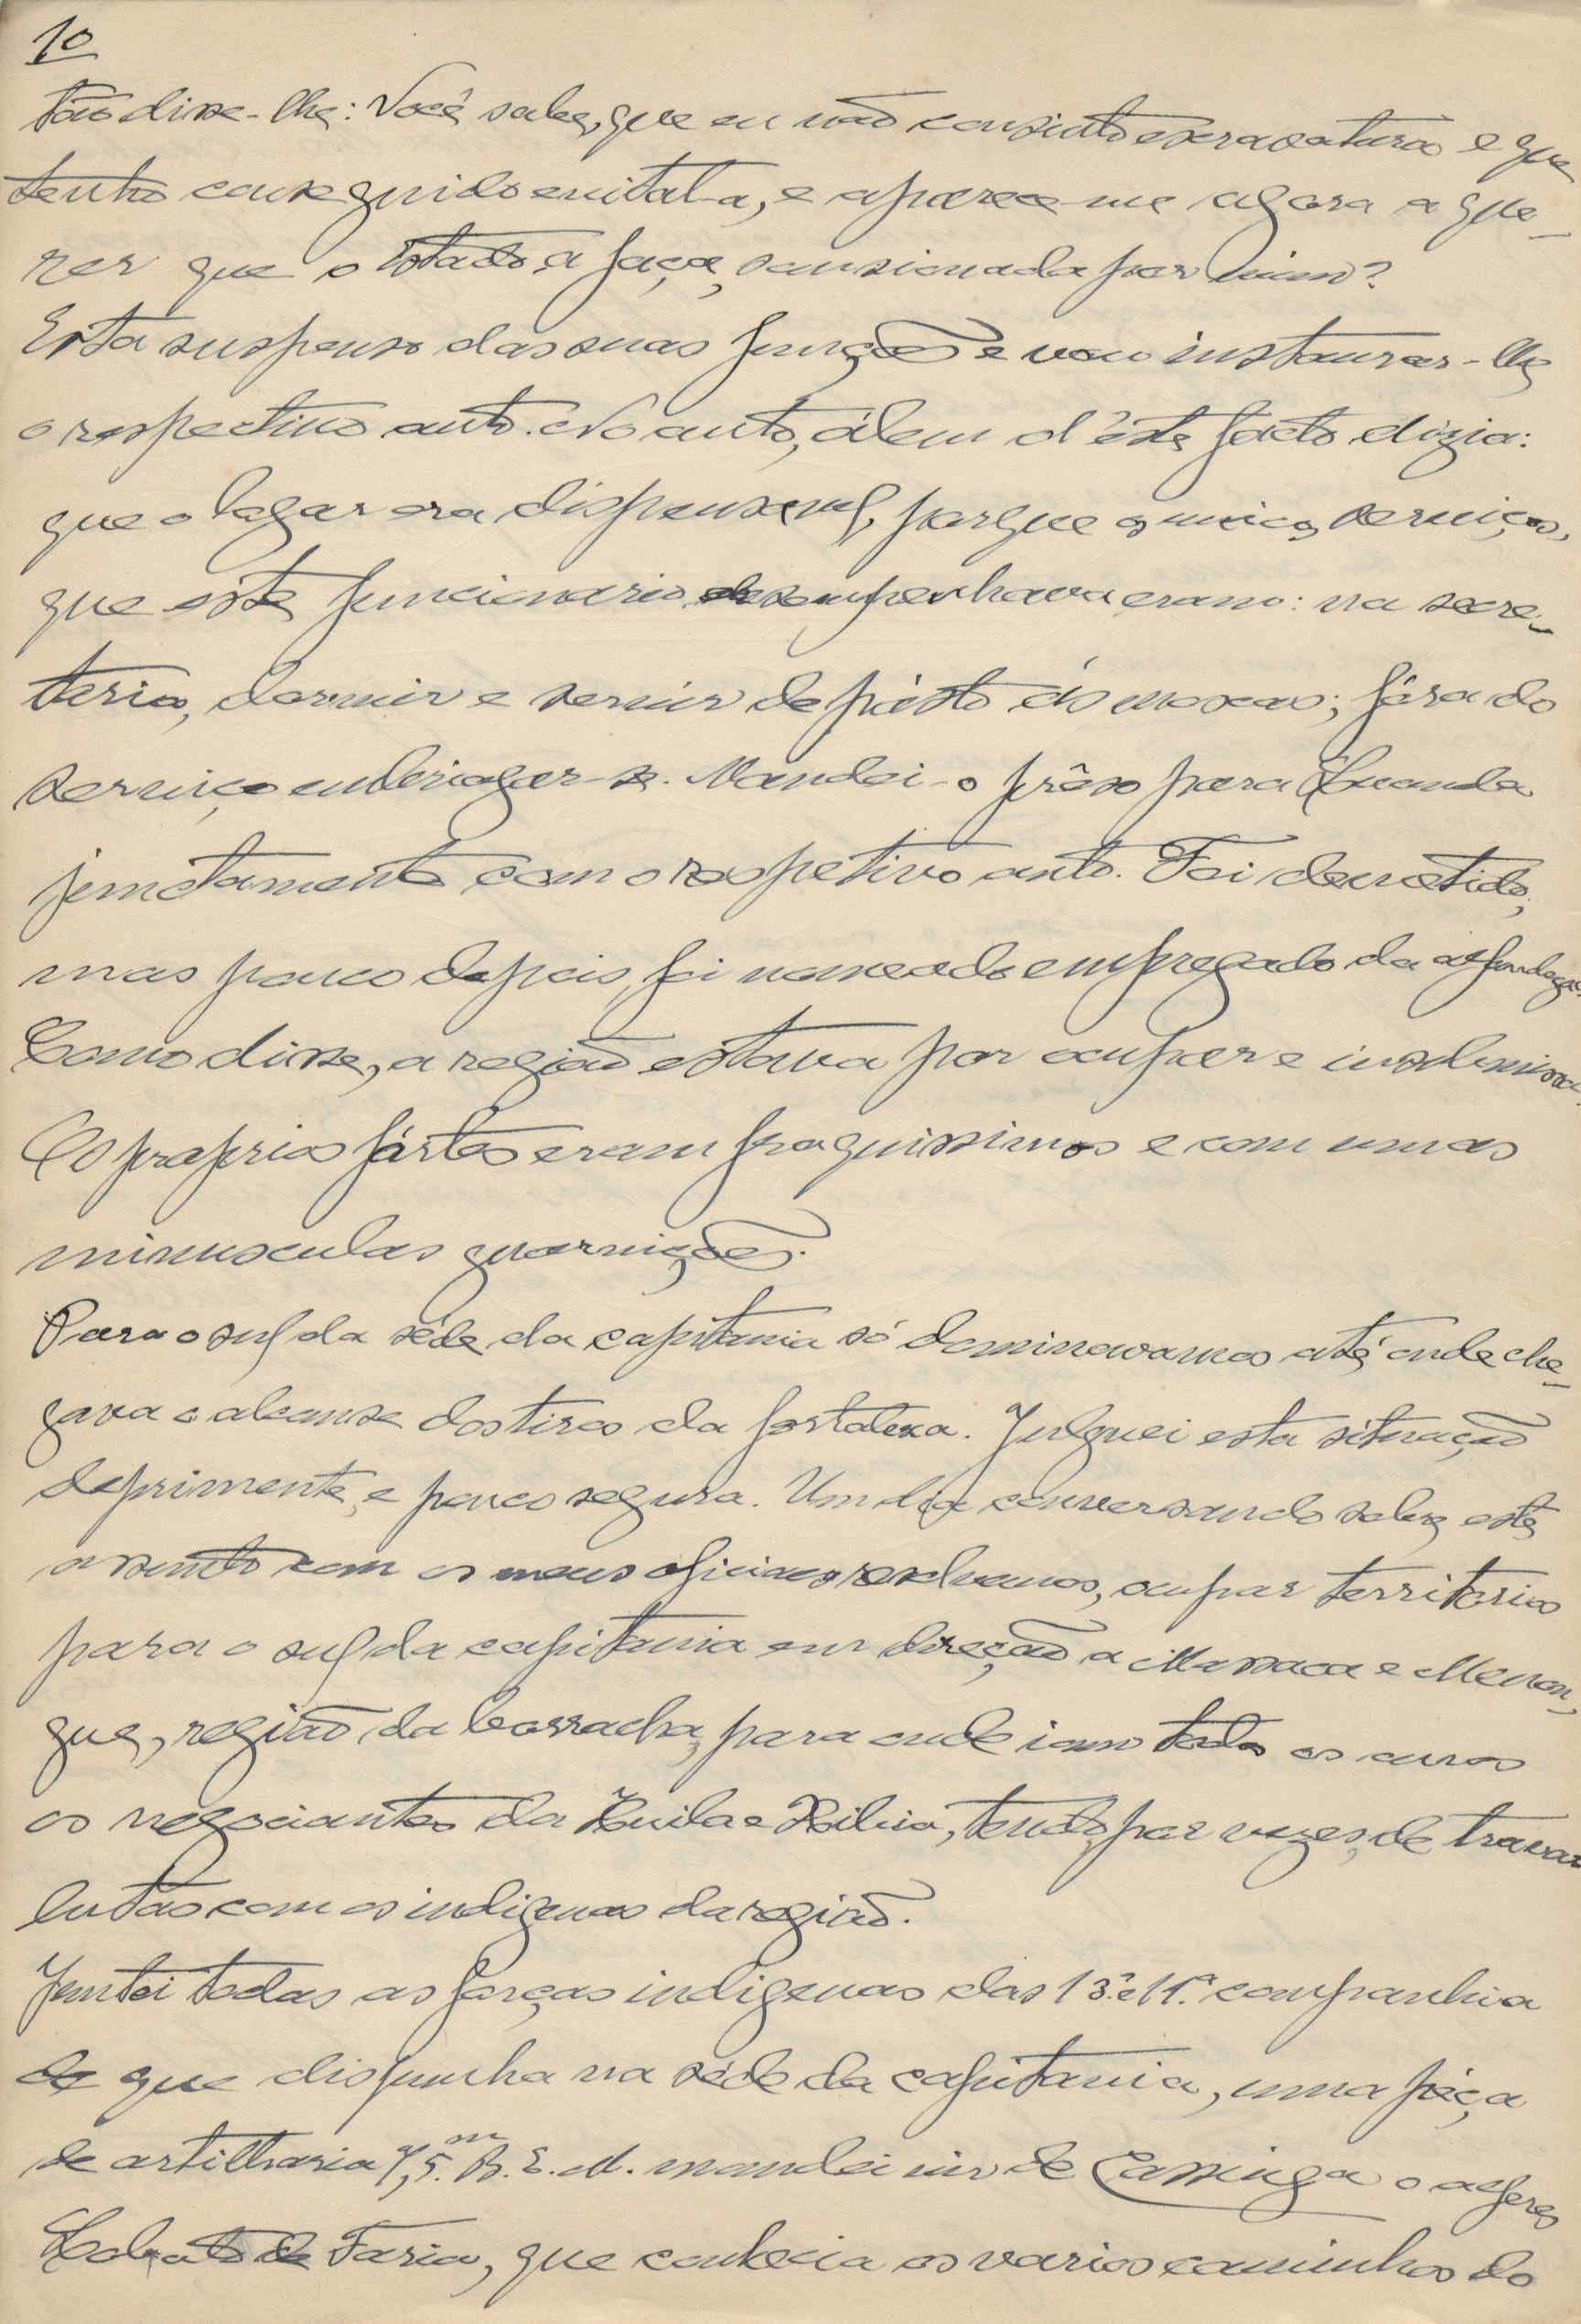 10
tão disse-lhe: Você sabe, que eu não consinto escravatura e que
tenho conseguido evital-a, e aparece-me agora a que-
rer que o Estado a faça, sancionada por mim?
Está suspenso das suas funções e vou instaurar-lhe
o respectivo auto. No auto, álem d'êste facto, dizia:
que o logar era dispensavel, porque os unicos serviços,
que este funcionario desempenhava eram: na secre-
taria, dormir e servir de pásto ás moscas; fóra do
serviço embriagar-se. Mandei-o prêso para Luanda
junctamente com o respetivo auto. Foi demetido,
mas pouco depois, foi nomeado empregado da alfandega.
Como disse, a região estava por ocupar e insubmissa.
Os proprios fórtes eram fraquissimos e com umas
minusculas guarnições.
Para o sul da séde da capitania só dominavamos até onde che-
gava o alcanse dos tiros da fortalexa. Julguei esta situação
deprimente, e pouco segura. Um dia conversando sobre este
assunto com os meus oficiaes resolvemos, ocupar territorios
para o sul da capitania em direção a Massaca e Menon-
gue, região da borracha, para onde iam todos os anos
os negociantes da Huila e Bihé, tendo, por vezes, de travar
lutas com os indigenas da região.
Juntei todas as forças indigenas das 13.ª e 11.ª companhia
de que dispunha na séde da capitania, uma péça
de artilharia 7,5. m B. E. M. mandei vir de Cassinga o alferes
de Faria, que conhecia os varios caminhos do